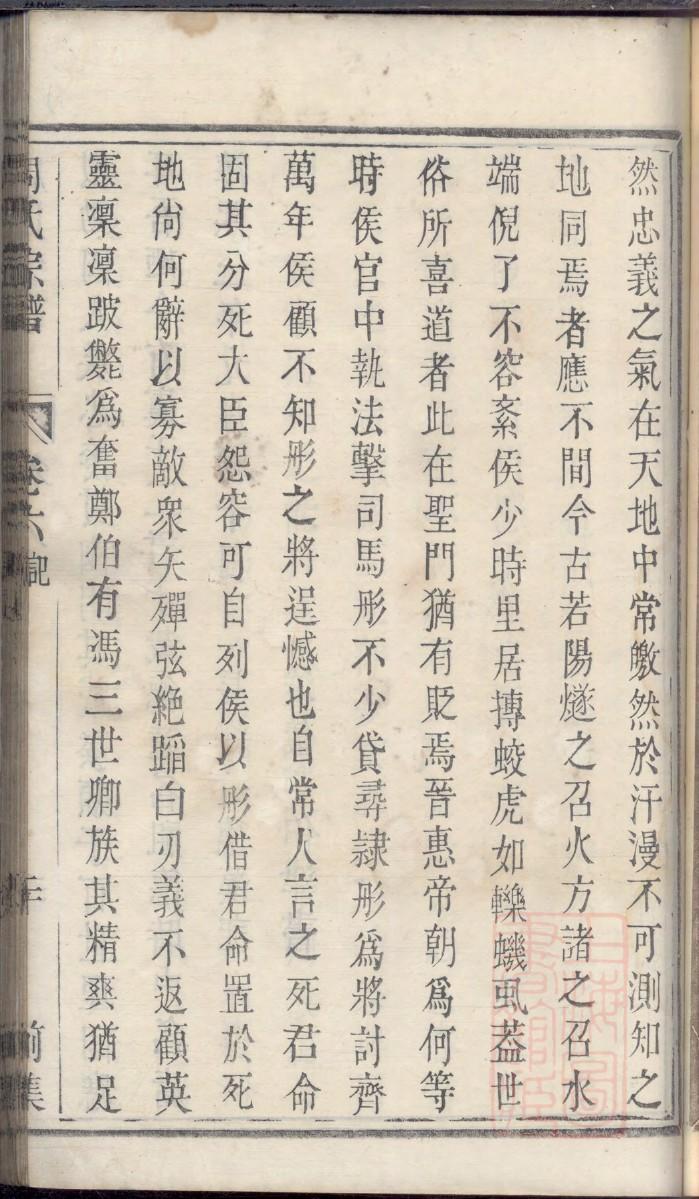 然忠義之氣在天地中常皦然於汗漫不可測知之
地同焉者應不間今古若陽燧之召火方諸之召水
端倪了不容紊侯少時里居摶蛟虎如轢蟣虱葢世
俗所喜道者此在聖門猶有貶焉晉惠帝朝爲何等
時侯官中執法擊司馬彤不少貸尋隸彤爲將討齊
萬年侯顧不知彤之將逞憾也自常人言之死君命
固其分死大臣怨容可自列侯以彤借君命置於死
地尙何辭以寡敵衆矢殫弦絶蹈白刃義不返顧英
靈凜凜跛斃爲奮鄭伯有馮三世卿族其精爽猶足
周氏宗譜 卷六 記 前集